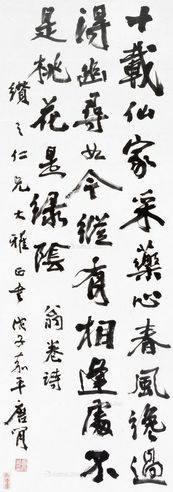 十載仙家采藥心春風纔過
得幽尋如今縱有相逢處不
是桃花是綠陰
翁卷詩
纘之仁兄大雅正書戊子嘉平唐肯